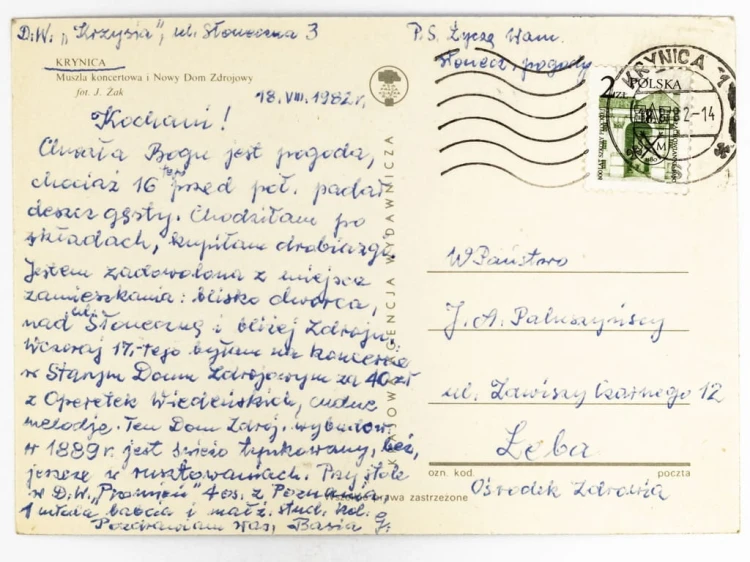 D.W. „Krzysia", ul. Słoneczna 3
KRYNICA
Muszla koncertowa i Nowy Dom Zdrojowy
fot. J. Żak
18.VIII.1982 r.
Kochani!
Chwała Bogu jest pogoda,
chociaż 16tego przed poł. padał
deszcz gęsty. Chodziłam po
składach, kupiłam drobiazgi.
Jestem zadowolona z miejsca
zamieszkania: blisko dworca,
nad ul. Słoneczną i bliżej Zdroju.
Wczoraj 17.tego byłam na koncercie
w Starym Domu Zdrojowym za 40 zł
z Operetek Wiedeńskich, cudne
melodje. Ten Dom Zdroj. wybudow.
w 1889 r. jest świeżo tynkowany,
jeszcze w rusztowaniach. Przy stole
w D.W. „Promień" 4 os. z Poznania,
1 młoda babcia i małż. stud.
Pozdrawiam Was, Basia G.
P.S. Życzę Wam
słonecz. pogody
KRYNICA 1
2-14
POLSKA
2 ZŁ
WYDAWNICZA
W Państwo
J. A. Paluszyńscy
ul. Zawiszy Czarnego 12
Łeba
ozn. kod. poczta
Ośrodek Zdrowia
prawa zastrzeżone